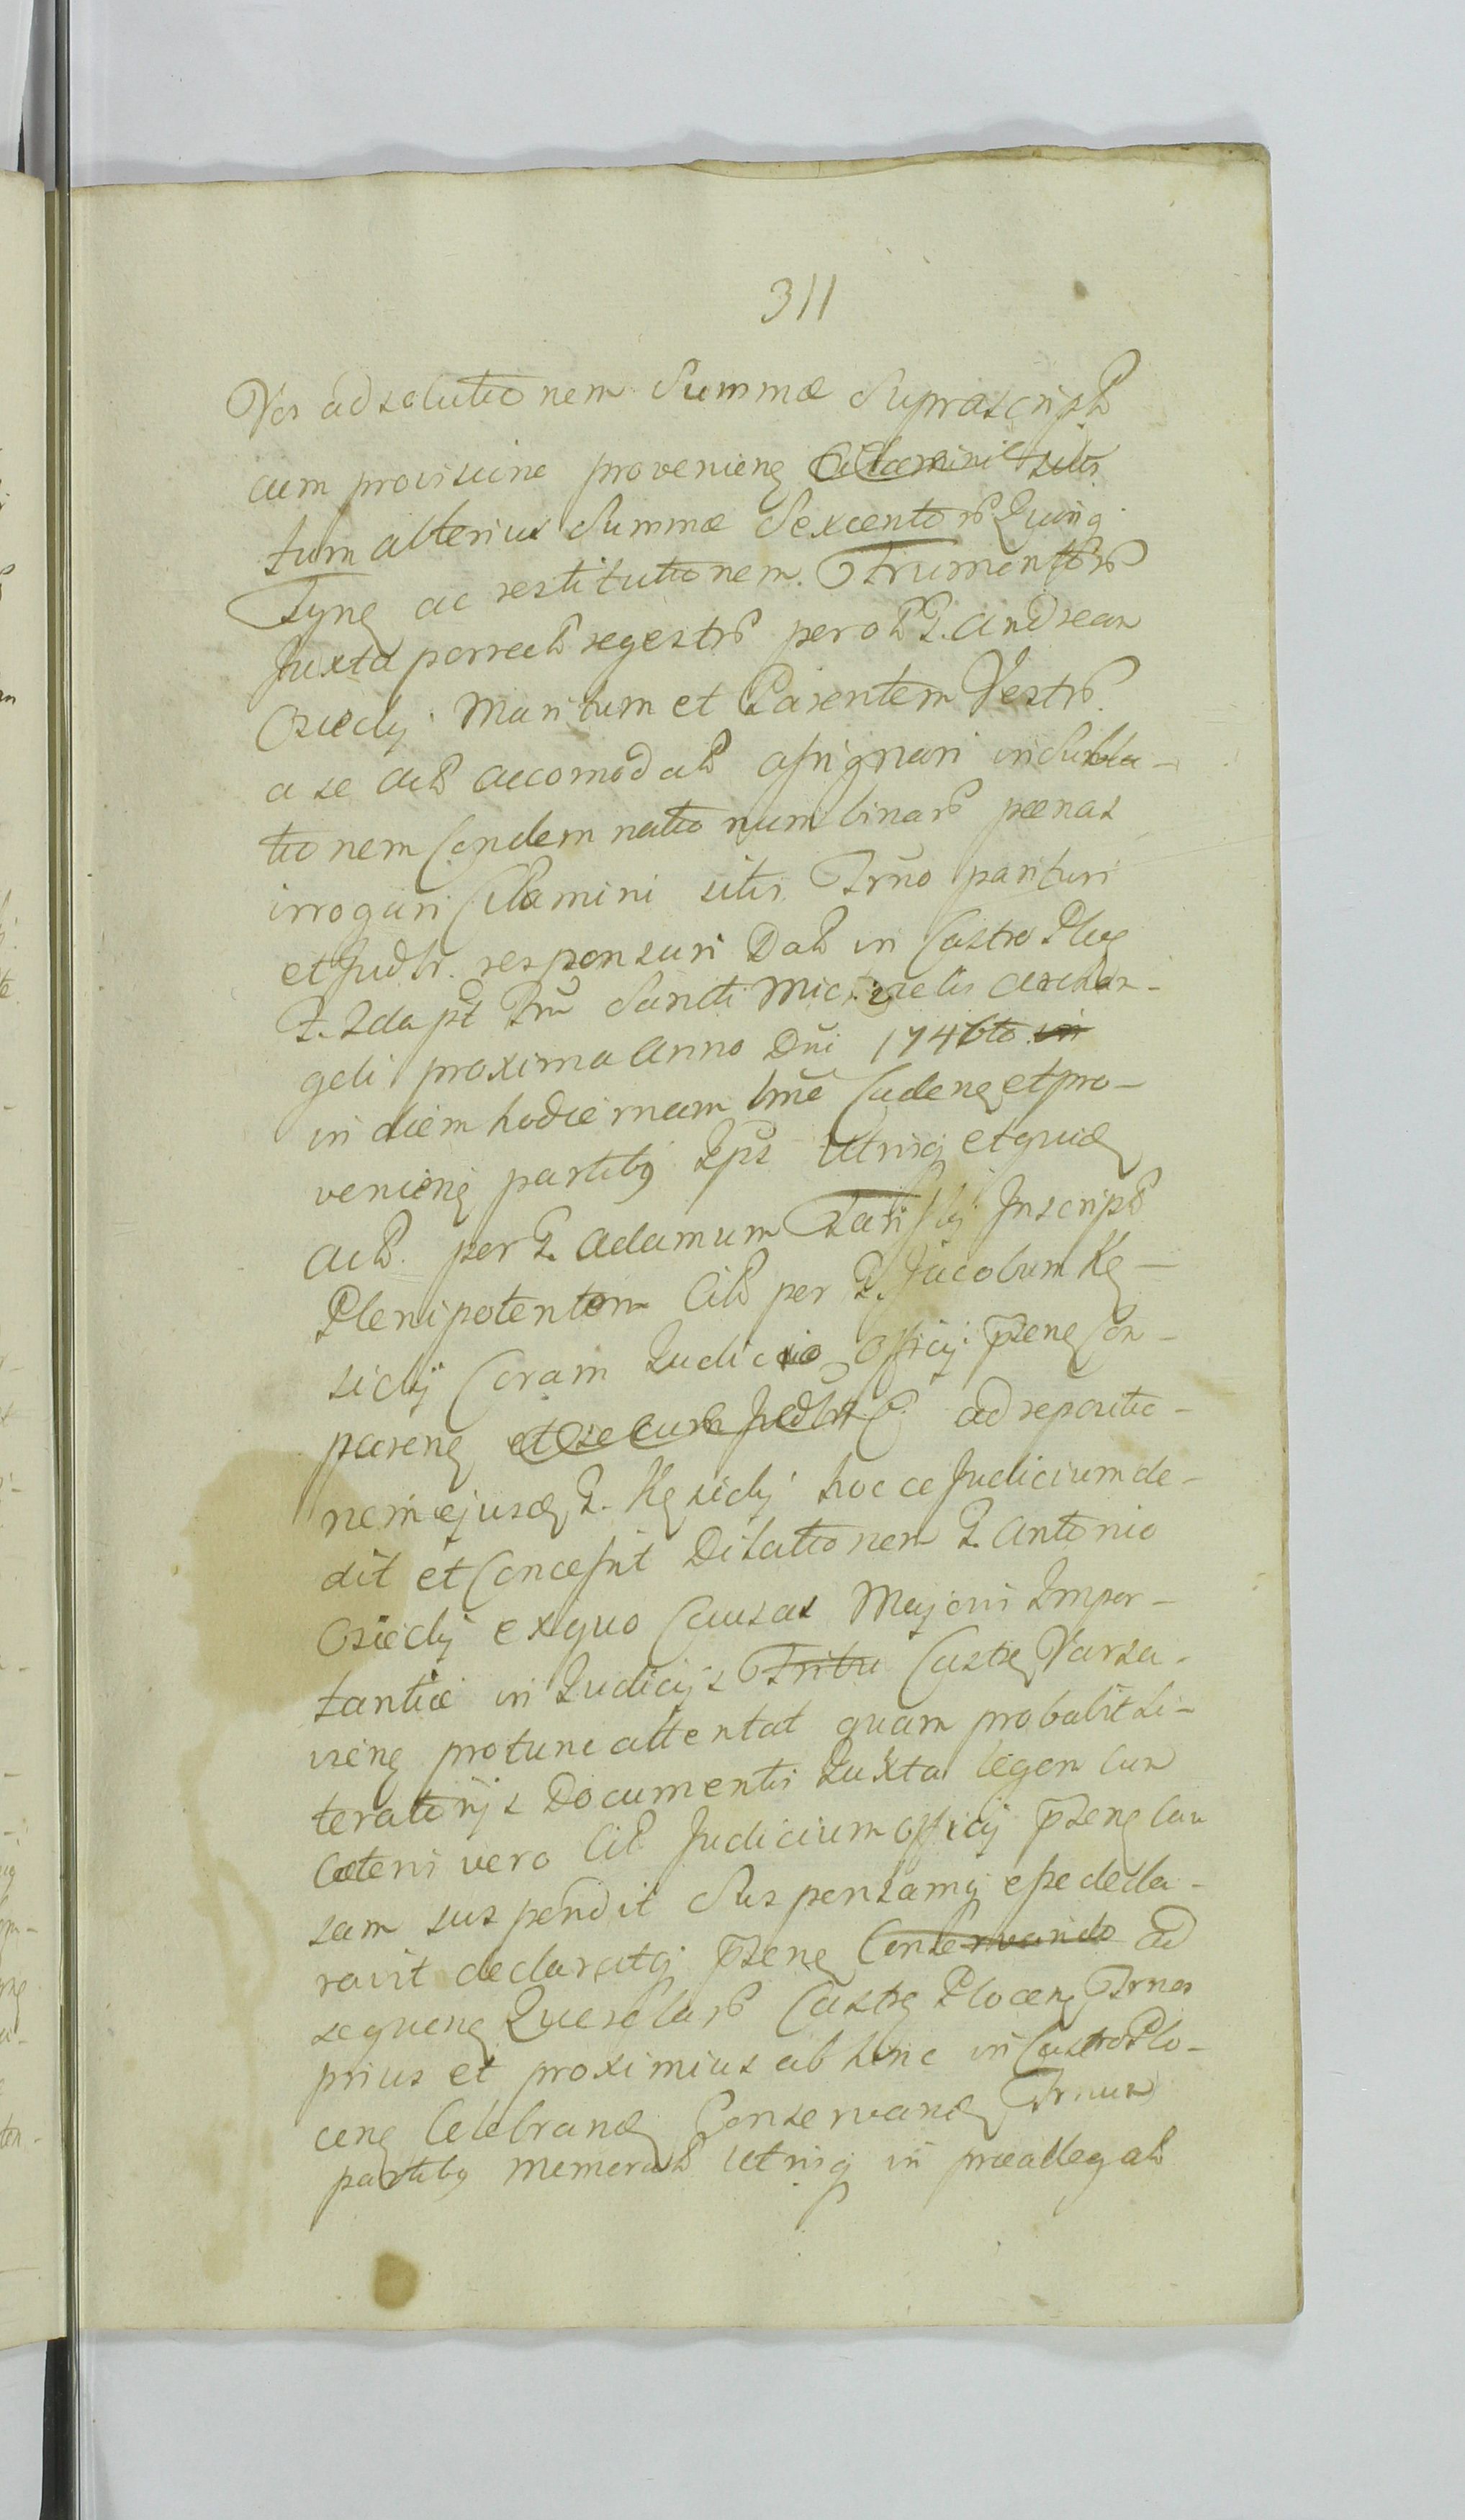 311
Vos ad solutionem Summæ Suprascript
cum provisione provenieng
tum alterius Summæ Sexcentor Quing
Tyng ac restitutionem. Frumentor
Juxta porrect regestr per ol G. Andream
Osiecky Maritum et Parentem Vestr.
a se act accomodat assignari in Subla-
tionem Condemnationum binar pænas
irrogari Citamini sitis Trno parituri
et Judlr. responsuri Dat in Castro Ploc
F. 2da pt Fm Sancti Michaelis Archan-
geli proxima Anno Dni 1746to in
in diem hodiernam lme Cadeng et pro-
venieng partibg Ips Utrisq et quid
Act. per G. Adamum Inscript
Plenipotentem Cit per G. Jacobum Kę-
sicky Coram Judicio Officy Pseng Com-
pareng ad repositio-
nem ejusd G. Kęsicky hocce Judicium de-
dit et Concessit Dilationem G. Antonio
Osiecky ex quo Causas Majoris Impor-
tantiæ in Judicijs Tribu Castr Varsa-
vieng protunc attentat quam probabit Li-
teratorijs Documentis Juxta legem cum
Cæteris vero Cit Judicium Officy Pseng cau
sam suspendit Suspensamq esse decla-
ravit declaratq Pseng Conservando ad
sequeng Querelar Castr Ploceng Trnos
prius et proximius ab hinc in Castro Plo-
ceng Celebrand Conservand Trnum
partibg memorat Utrisq in præallegat